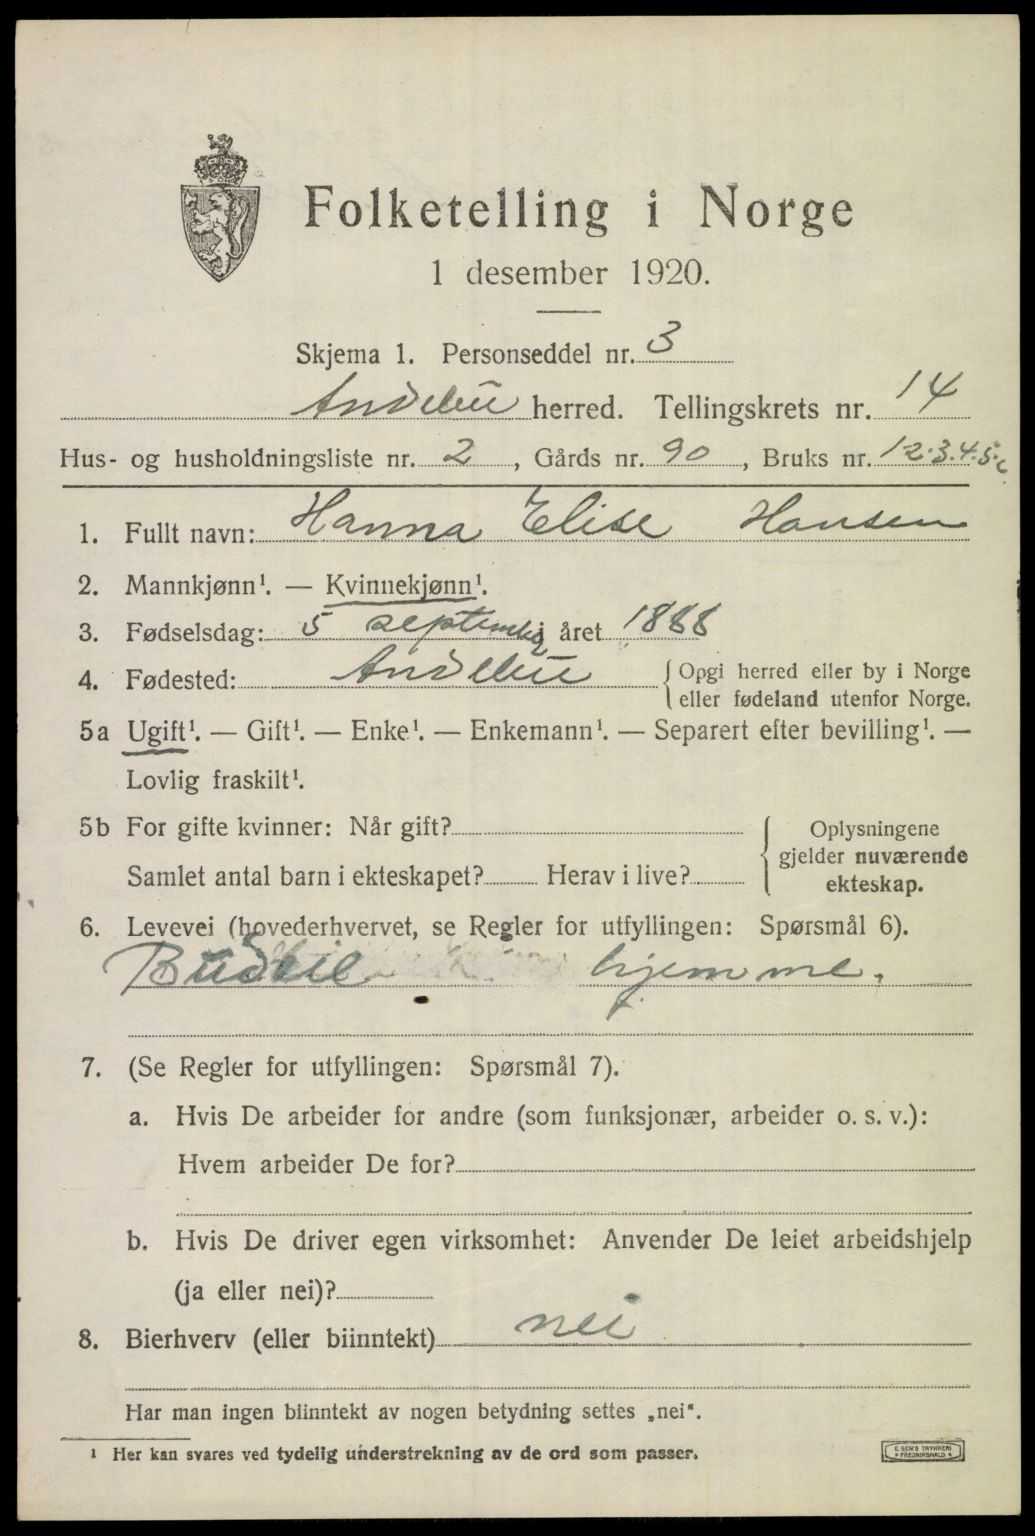 Folketelling i Norge
1 desember 1920.
Skjema 1. Personseddel nr. 3
Andebu herred. Tellingskrets nr. 14
Hus- og husholdningsliste nr. 2, Gårds nr. 90, Bruks nr. 1-2.3.4.5.
1. Fullt navn: Hanna Elise Hansen
2. Mannkjønn¹. — Kvinnekjønn¹.
3. Fødselsdag: 5 september i året 1888
4. Fødested: Andebu { Opgi herred eller by i Norge
eller fødeland utenfor Norge.
5a Ugift¹. — Gift¹. — Enke¹. — Enkemann¹. — Separert efter bevilling¹. —
Lovlig fraskilt¹.
5b For gifte kvinner: Når gift?
Samlet antal barn i ekteskapet? Herav i live?
{ Oplysningene
gjelder nuværende
ekteskap.
6. Levevei (hovederhvervet, se Regler for utfyllingen: Spørsmål 6).
Budeie hjemme.
7. (Se Regler for utfyllingen: Spørsmål 7).
a. Hvis De arbeider for andre (som funksjonær, arbeider o. s. v.):
Hvem arbeider De for?
b. Hvis De driver egen virksomhet: Anvender De leiet arbeidshjelp
(ja eller nei)?
8. Bierhverv (eller biinntekt) nei
Har man ingen biinntekt av nogen betydning settes „nei“.
¹ Her kan svares ved tydelig understrekning av de ord som passer.
E. SEM'S TRYKKERI
FREDRIKSHALD.